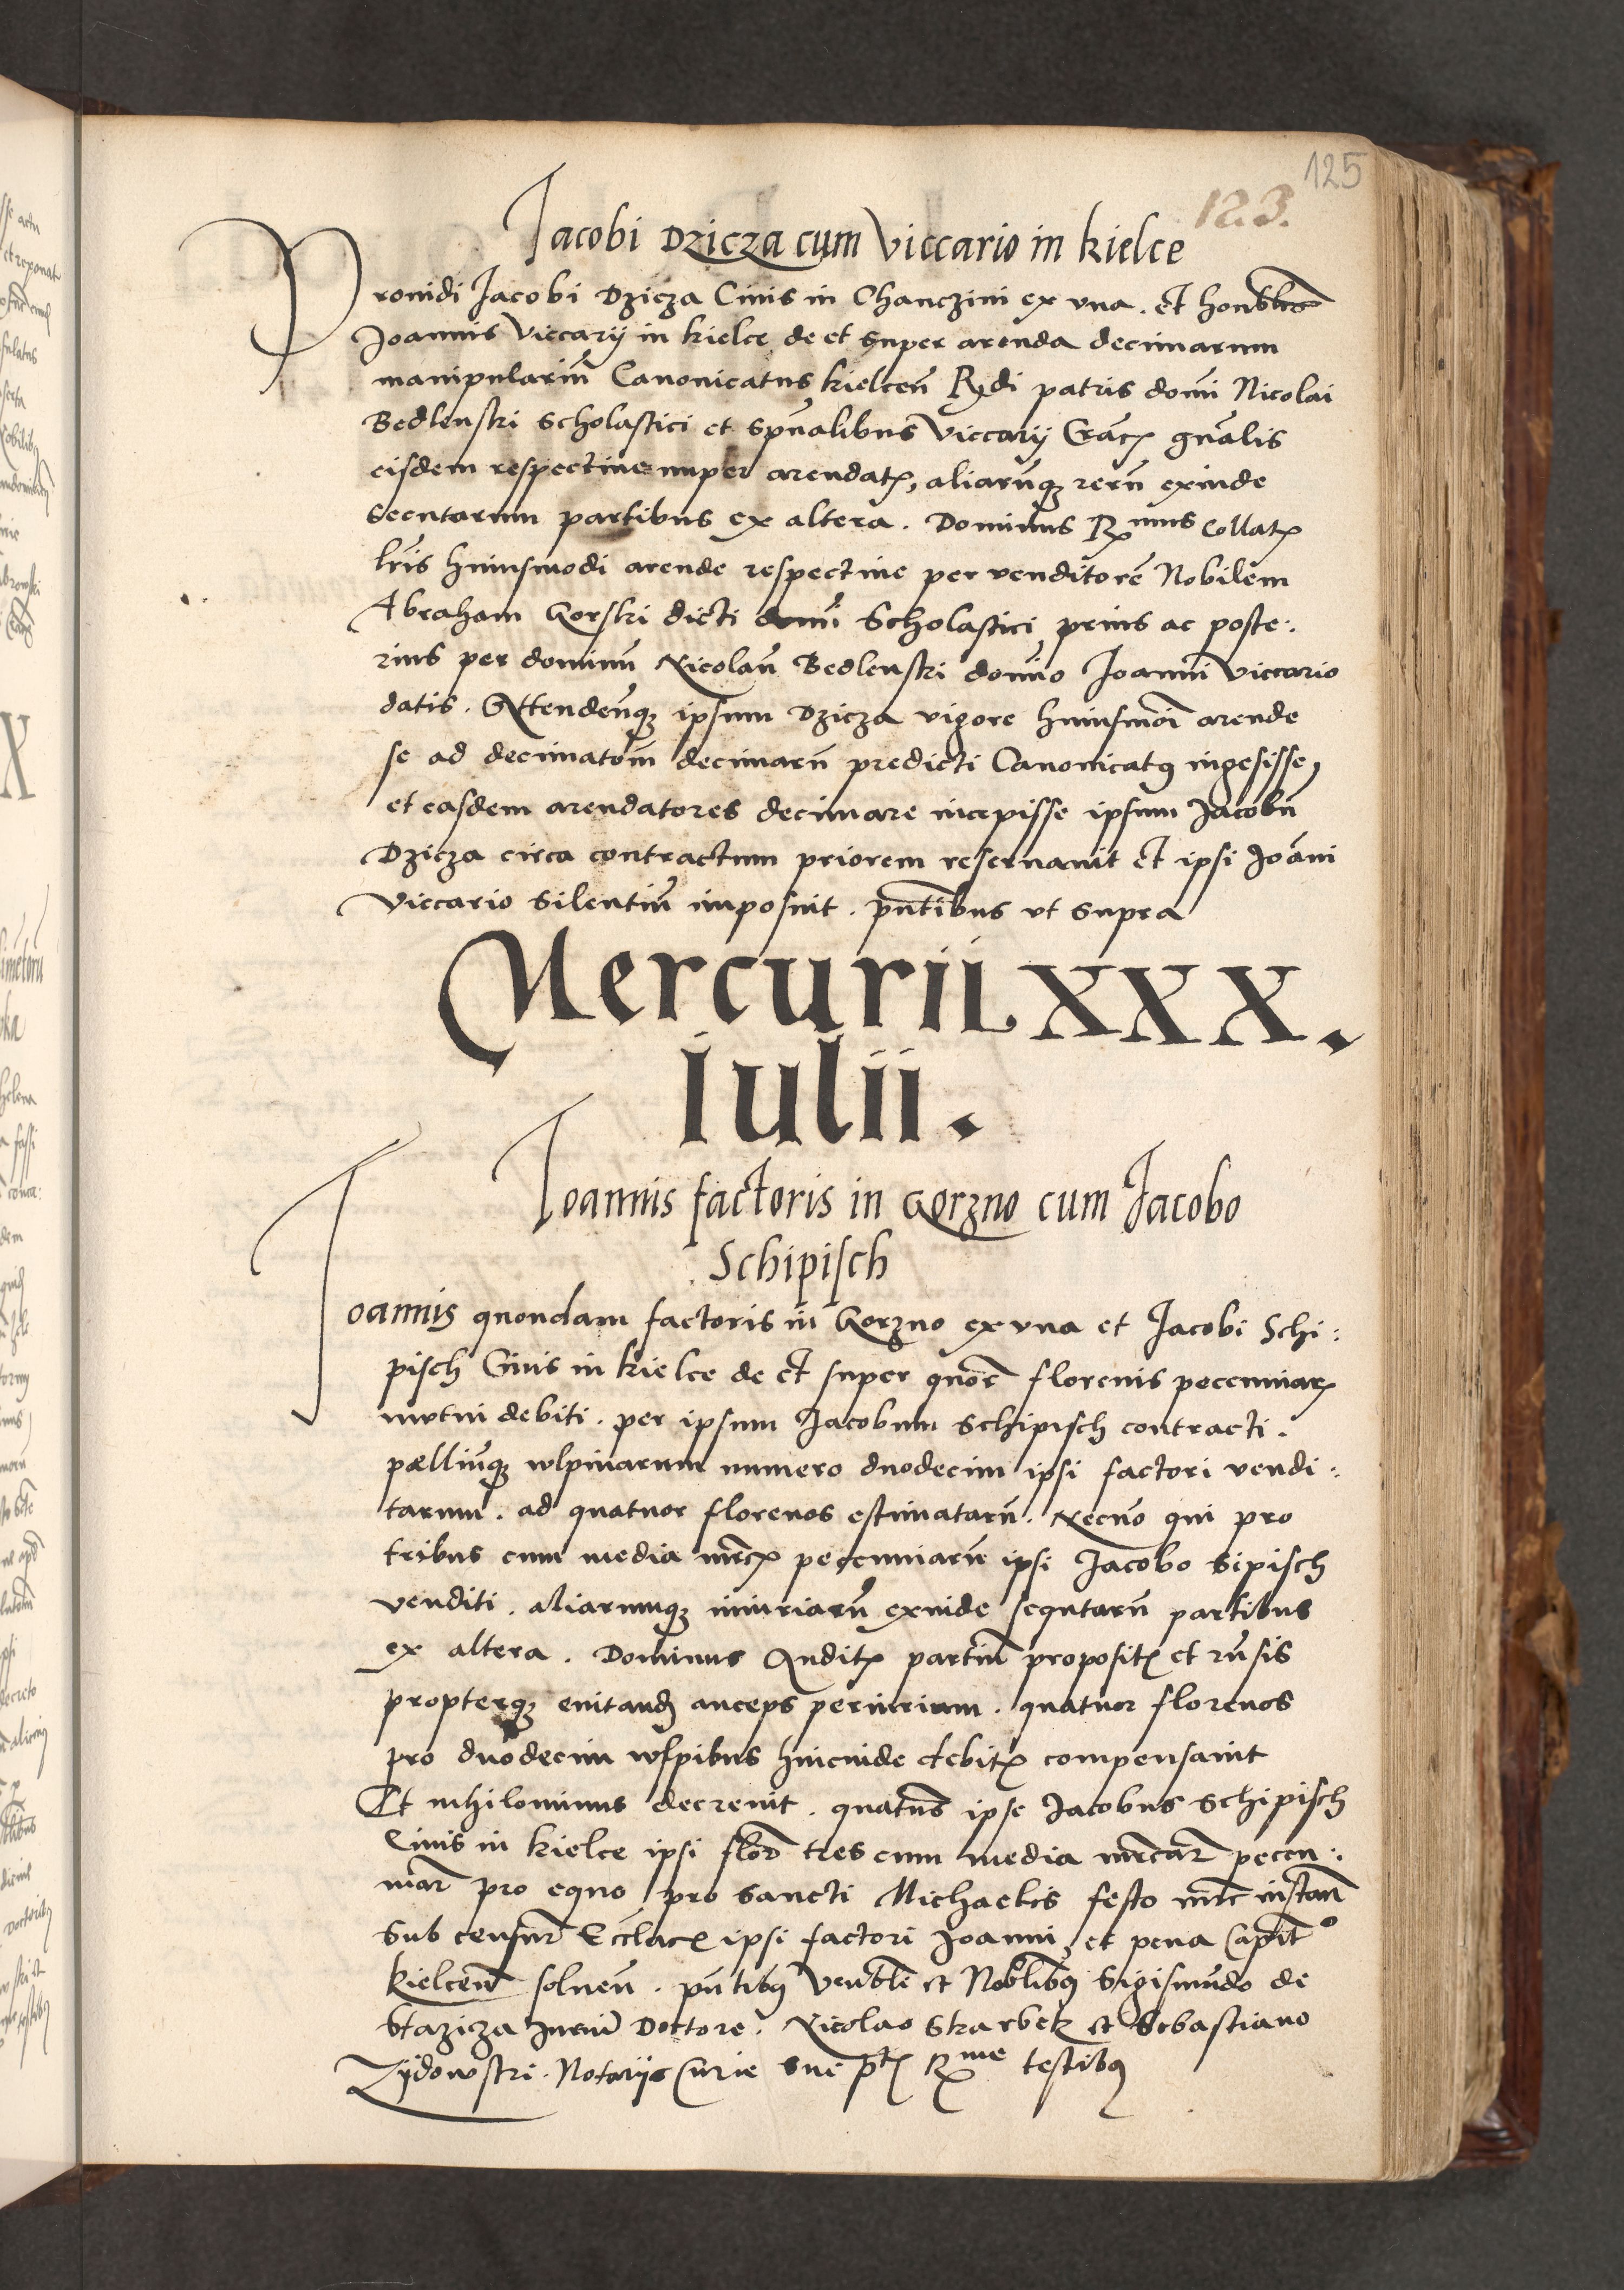 125
123.
Jacobi Dzicza cum Viccario in Kielce
Prouidi Jacobi Dzicza Ciuis in Chanczini ex vna. et honblis
Joannis Viccarij in Kielce de et super arenda decimarum
manipulariũ Canonicatus kielceñ Rdi patris domi Nicolai
Bedlenski Scholastici et spũalibus Viccarij Crac gñalis
eisdem respectiue nuper arendat, aliarũqȝ rerũ exinde
secutarum partibus ex altera. Dominus Rmus Collat
lris huiusmodi arende respectiue per venditorẽ Nobilem
Abraham Gorski dicti domi Scholastici prius ac poste:
rius per dominũ Nicolaũ Bedlenski domino Joanni Viccario
datis. Attendeñqȝ ipsum Dzicza vigore huiusmoi arende
se ad decimatom decimarũ predicti Canonicatꝰ ingesisse,
et easdem arendatores decimare incepisse ipsum Jacobũ
Dzicza circa contractum priorem reseruauit et ipsi Joãni
Viccario silentiũ imposuit. pñtibus vt supra
Mercurii XXX.
Iulii.
Joannis factoris in Gorzno cum Jacobo
Schipisch
Joannis quondam factoris in Gorzno ex vna et Jacobi Schi:
pisch Ciuis in Kielce de et super florenis pecuniar
mutui debiti. per ipsum Jacobum Schipisch contracti.
pelliũqȝ wlpinarum numero duodecim ipsi factori vendi:
tarum. ad quatuor florenos estimatarũ. Necnõ qui pro
tribus cum media mrc pecuniarũ ipsi Jacobo Sipisch
venditi. aliarumqȝ iniuriarũ exinde sequtarũ partibus
ex altera. Dominus Audit partiũ proposit et rñsis
propterqȝ euitand anceps periurium. quatuor florenos
pro duodecim wlpibus hincinde debit compensauit
Et nihilominus decreuit. quatũs ipse Jacobus Schipisch
Ciuis in Kielce ipsi flor tres cum media mrcar pecun:
iar pro equo pro Sancti Michaelis festo nũc instañ
Sub censur Ecclac ipsi factori Joanni, et pena Capit
Kielceñ solueñ. pñtibꝰ Venbli et Noblibꝰ Sigismũdo de
Stazicza Juriũ Doctore. Nicolao Skarbek et Sebastiano
Zydowski. Notarijs Curie sue pt Rme testibꝰ